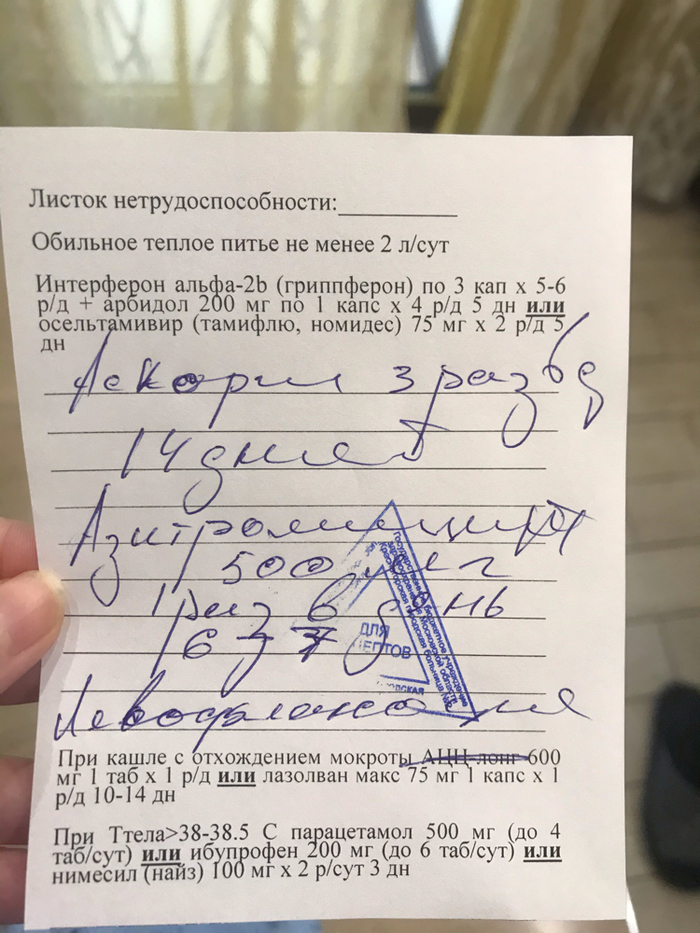 Листок нетрудоспособности:__________
Обильное теплое питье не менее 2 л/сут
Интерферон альфа-2b (гриппферон) по 3 кап х 5-6
р/д + арбидол 200 мг по 1 капс х 4 р/д 5 дн или
осельтамивир (тамифлю, номидес) 75 мг х 2 р/д 5
дн
Аскорил 3 раз в д
14 дней
Азитромицин
500 мг
1 раз в день
ДЛЯ
Левофлоксацин
При кашле с отхождением мокроты АЦЦ-лонг 600
мг 1 таб х 1 р/д или лазолван макс 75 мг 1 капс х 1
р/д 10-14 дн
При Ттела>38-38.5 С парацетамол 500 мг (до 4
таб/сут) или ибупрофен 200 мг (до 6 таб/сут) или
нимесил (найз) 100 мг х 2 р/сут 3 дн